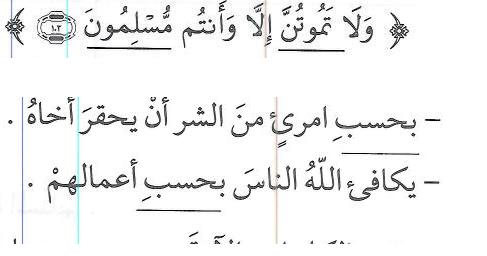 ﴿ وَلَا تَمُوتُنَّ إِلَّا وَأَنتُم مُّسْلِمُونَ ١٠٢ ﴾
– بحسبِ امرئٍ منَ الشر أنْ يحقرَ أخاهُ .
– يكافئ اللّهُ الناسَ بحسبِ أعمالهمْ .